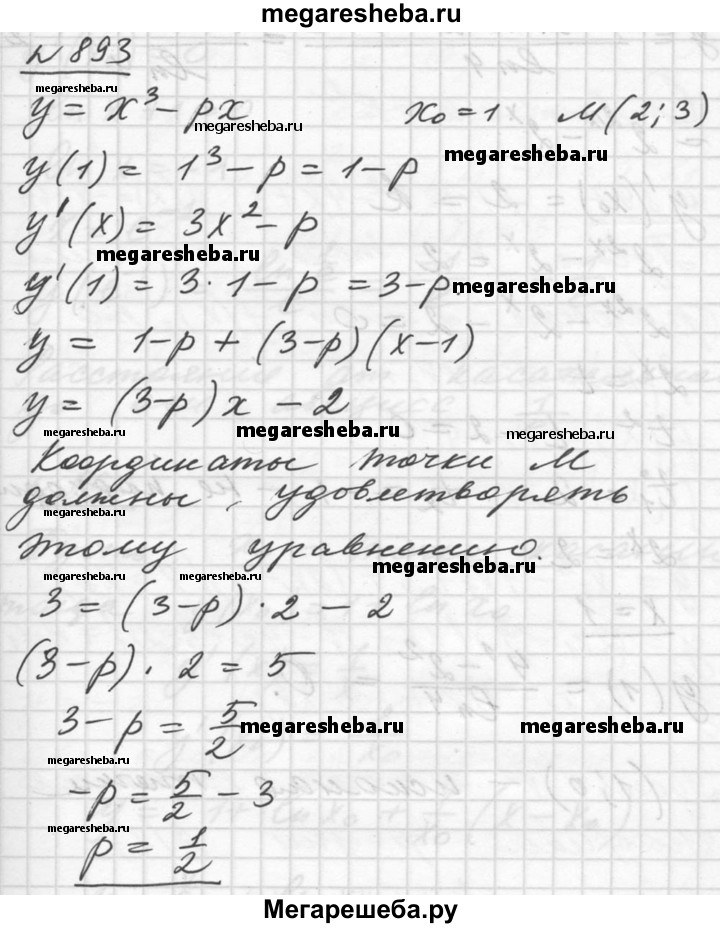 megaresheba.ru
№ 893
megaresheba.ru
y = x³ - px x₀ = 1 M(2; 3)
megaresheba.ru
megaresheba.ru
y(1) = 1³ - p = 1 - p
y'(x) = 3x² - p
megaresheba.ru
y'(1) = 3 · 1 - p = 3 - p
megaresheba.ru
y = 1 - p + (3 - p)(x - 1)
y = (3 - p)x - 2
megaresheba.ru megaresheba.ru megaresheba.ru
Координаты точки M
должны удовлетворять
megaresheba.ru
этому уравнению.
megaresheba.ru
megaresheba.ru megaresheba.ru
3 = (3 - p) · 2 - 2
(3 - p) · 2 = 5
3 - p = 5/2
megaresheba.ru megaresheba.ru
megaresheba.ru
-p = 5/2 - 3
megaresheba.ru
p = 1/2
Мегарешеба.ру